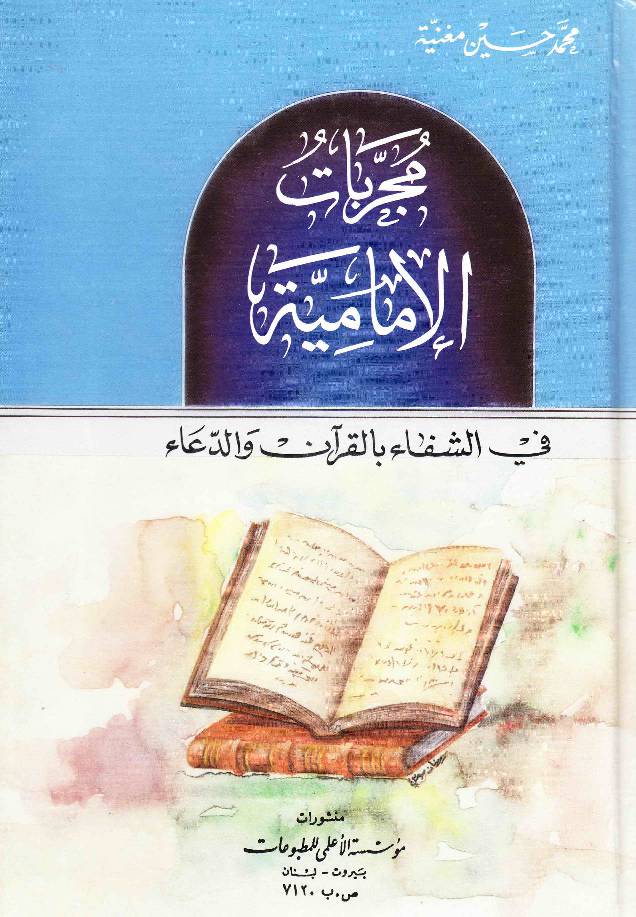 محمد حسين مغنيّة
مُجرَّباتُ
الإماميَّة
في الشفاء بالقرآن والدّعاء
منشورات
مؤسسة الأعلمي للمطبوعات
بيروت - لبنان
ص.ب ٧١٢٠